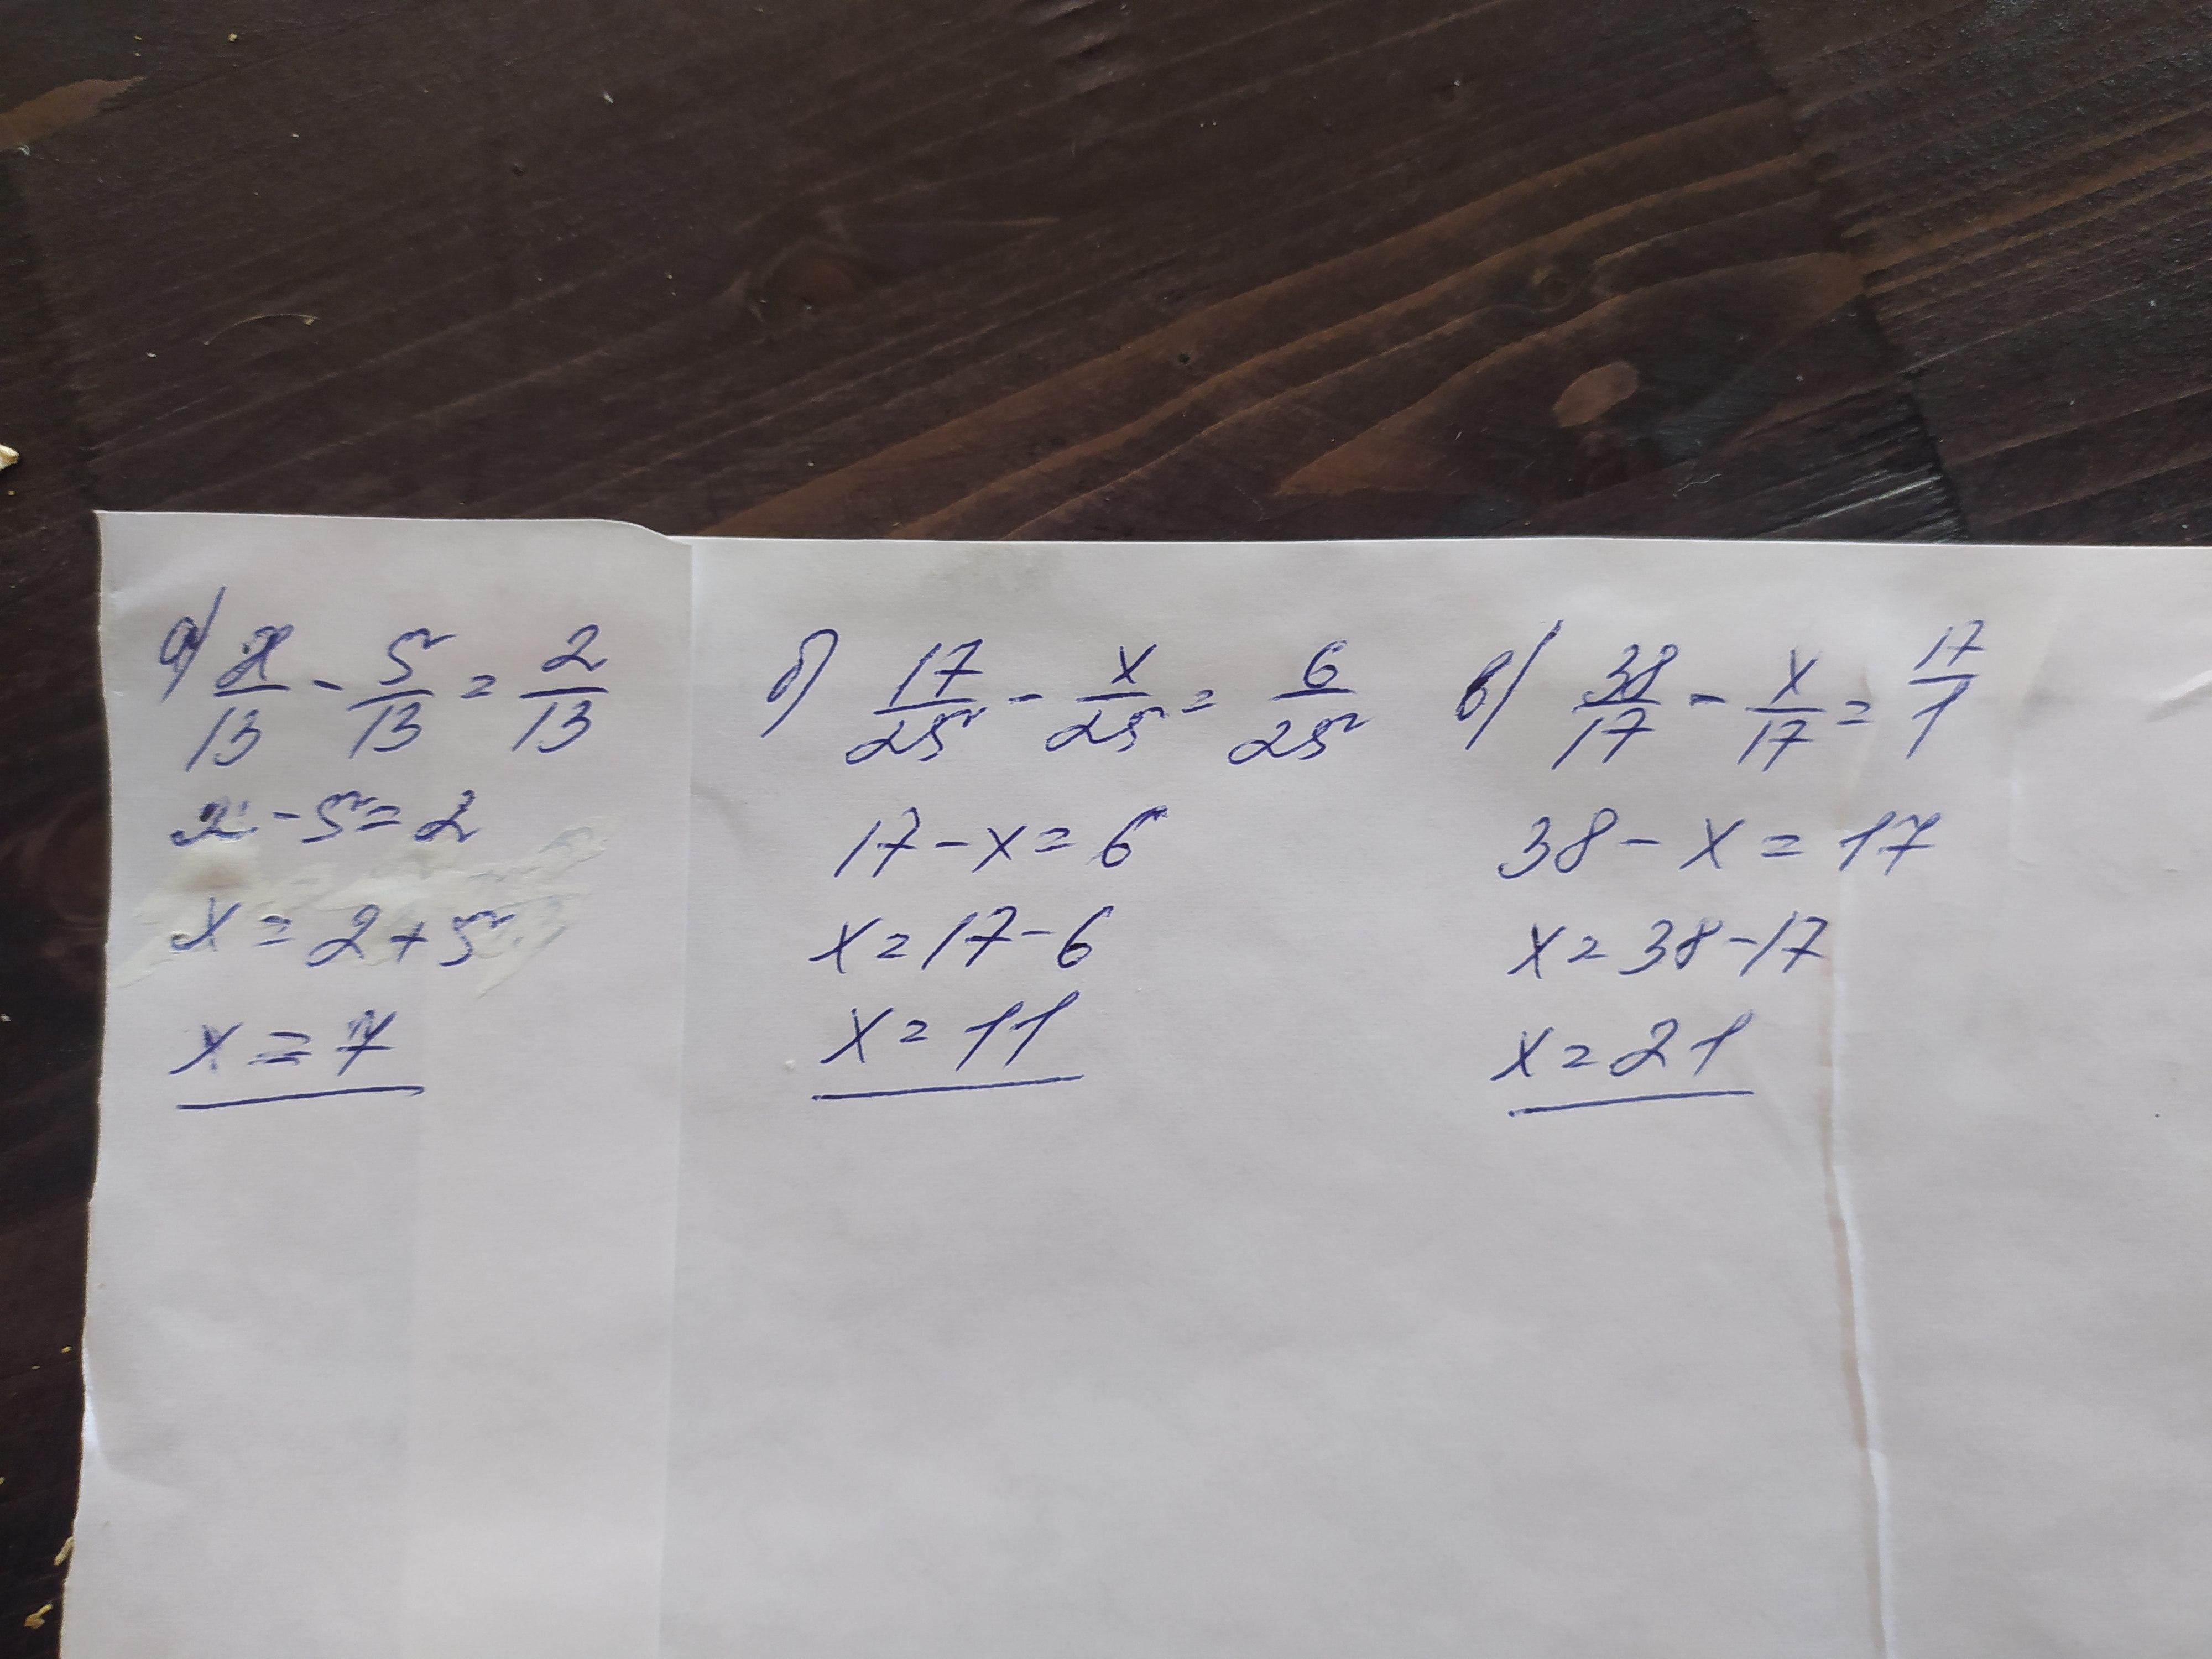 а) x/13 - 5/13 = 2/13
x - 5 = 2
x = 2 + 5
x = 7
б) 17/25 - x/25 = 6/25
17 - x = 6
x = 17 - 6
x = 11
в) 38/17 - x/17 = 17/1
38 - x = 17
x = 38 - 17
x = 21